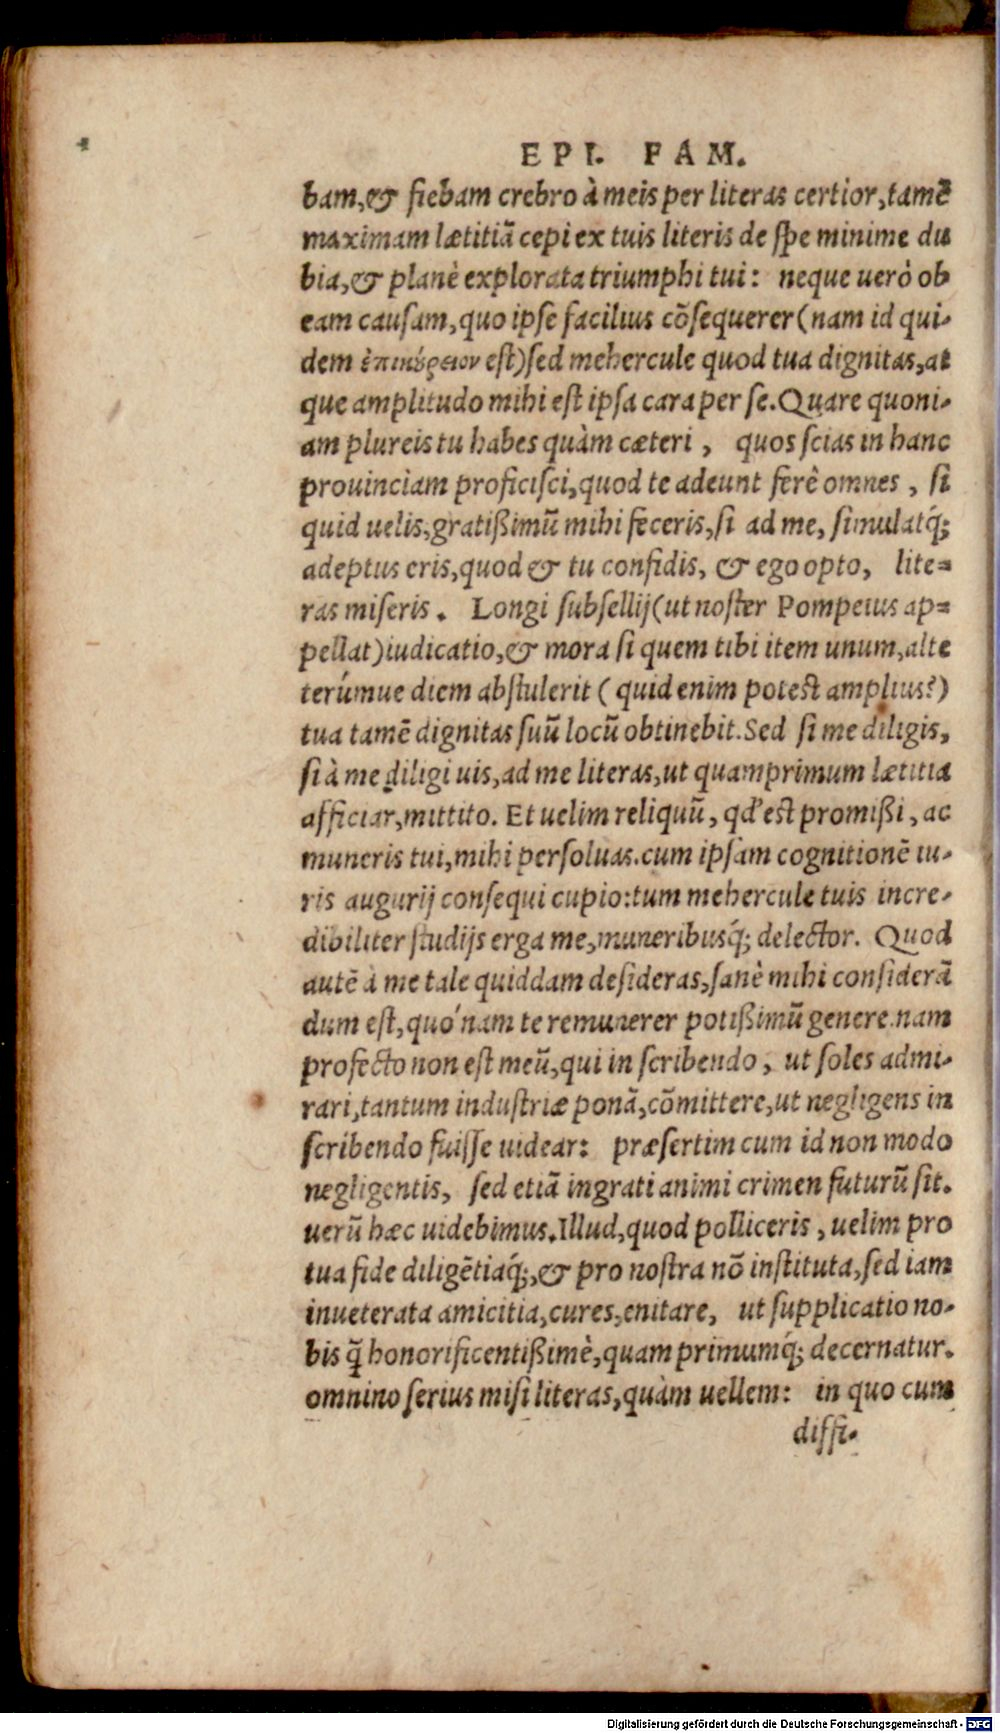 EPI. FAM.
bam,& fiebam crebro à meis per literas certior,tamẽ
maximam lætitiã cepi ex tuis literis de ſpe minime du
bia,& planè explorata triumphi tui: neque uerò ob
eam cauſam,quo ipſe facilius cõſequerer(nam id qui-
dem ἐπικούρειον eſt)ſed mehercule quod tua dignitas,at
que amplitudo mihi eſt ipſa cara per ſe.Quare quoni-
am plureis tu habes quàm cæteri, quos ſcias in hanc
prouinciam proficiſci,quod te adeunt ferè omnes, ſi
quid uelis,gratißimũ mihi feceris,ſi ad me, ſimulatq́;
adeptus eris,quod & tu confidis, & ego opto, lite=
ras miſeris. Longi ſubſellij(ut noſter Pompeius ap=
pellat)iudicatio,& mora ſi quem tibi item unum,alte
terúmue diem abſtulerit (quid enim poteſt amplius?)
tua tamẽ dignitas ſuũ locũ obtinebit.Sed ſi me diligis,
ſi à me diligi uis,ad me literas,ut quamprimum lætitia
afficiar,mittito. Et uelim reliquũ, qd' eſt promißi, ac
muneris tui,mihi perſoluas.cum ipſam cognitionẽ iu-
ris augurij conſequi cupio:tum mehercule tuis incre-
dibiliter ſtudijs erga me,muneribusq́; delector. Quod
autẽ à me tale quiddam deſideras,ſanè mihi conſiderã
dum eſt,quo'nam te remunerer potißimũ genere.nam
profecto non eſt meũ,qui in ſcribendo, ut ſoles admi-
rari,tantum induſtriæ ponã,cõmittere,ut negligens in
ſcribendo fuiſſe uidear: præſertim cum id non modo
negligentis, ſed etiã ingrati animi crimen futurũ ſit.
uerũ hæc uidebimus.Illud,quod polliceris, uelim pro
tua fide diligẽtiaq́;,& pro noſtra nõ inſtituta,ſed iam
inueterata amicitia,cures,enitare, ut ſupplicatio no-
bis q̃ honorificentißimè,quam primumq́; decernatur.
omnino ſerius miſi literas,quàm uellem: in quo cum
diffi-
Digitalisierung gefördert durch die Deutsche Forschungsgemeinschaft - DFG